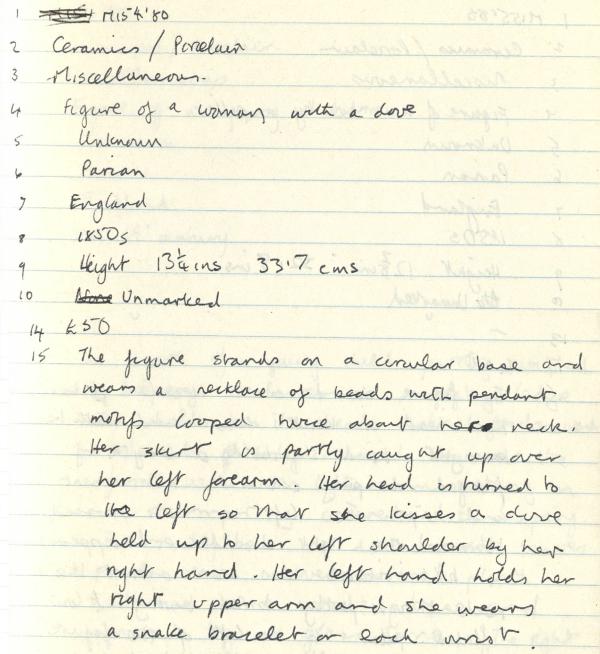 1 M154'80
2 Ceramics / Porcelain
3 Miscellaneous.
4 Figure of a woman with a dove
5 Unknown
6 Parian
7 England
8 1850s
9 Height 13¼ ins 33·7 cms
10 Unmarked
14 £50
15 The figure stands on a circular base and
wears a necklace of beads with pendant
motifs looped twice about her neck.
Her skirt is partly caught up over
her left forearm. Her head is turned to
the left so that she kisses a dove
held up to her left shoulder by her
right hand. Her left hand holds her
right upper arm and she wears
a snake bracelet on each wrist.